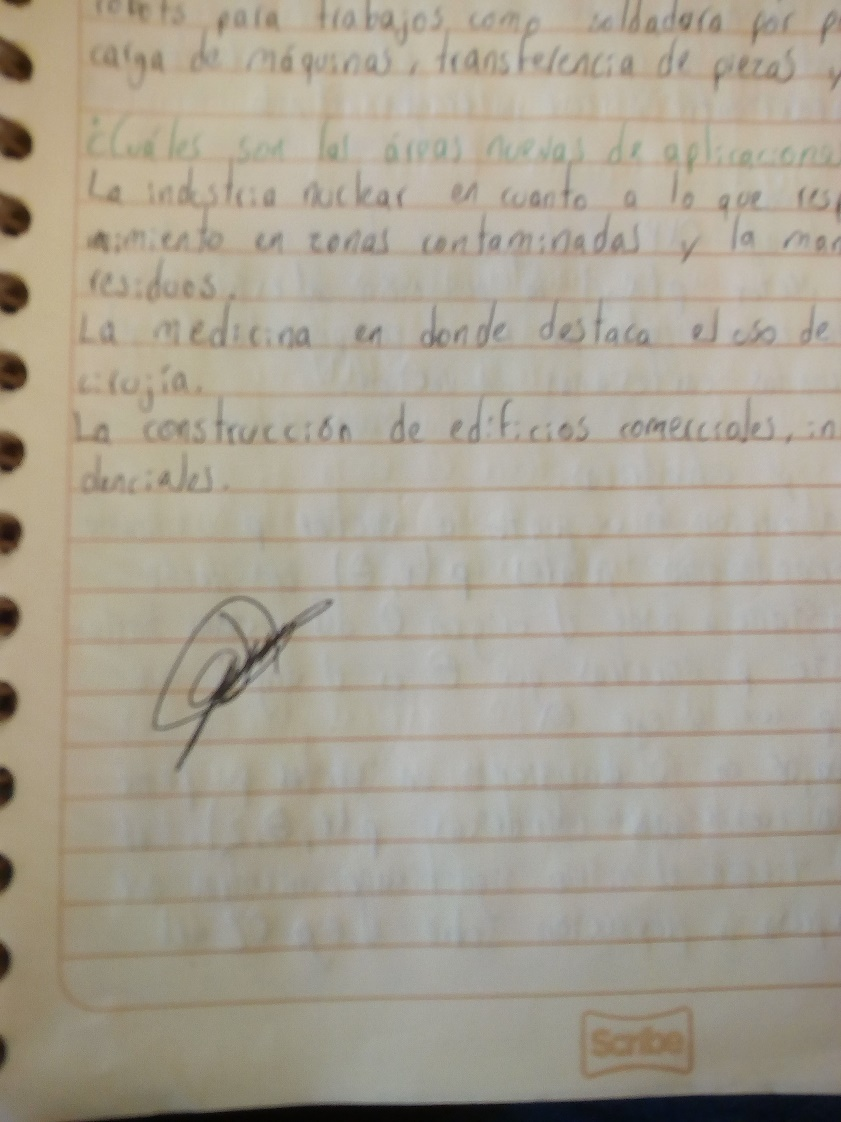 robots para trabajos como soldadura por p
carga de máquinas, transferencia de piezas y
¿Cuáles son las áreas nuevas de aplicacione
La industria nuclear en cuanto a lo que res
nimiento en zonas contaminadas y la man
residuos.
La medicina en donde destaca el uso de
cirujía.
La construcción de edificios comerciales, in
denciales.
Scribe